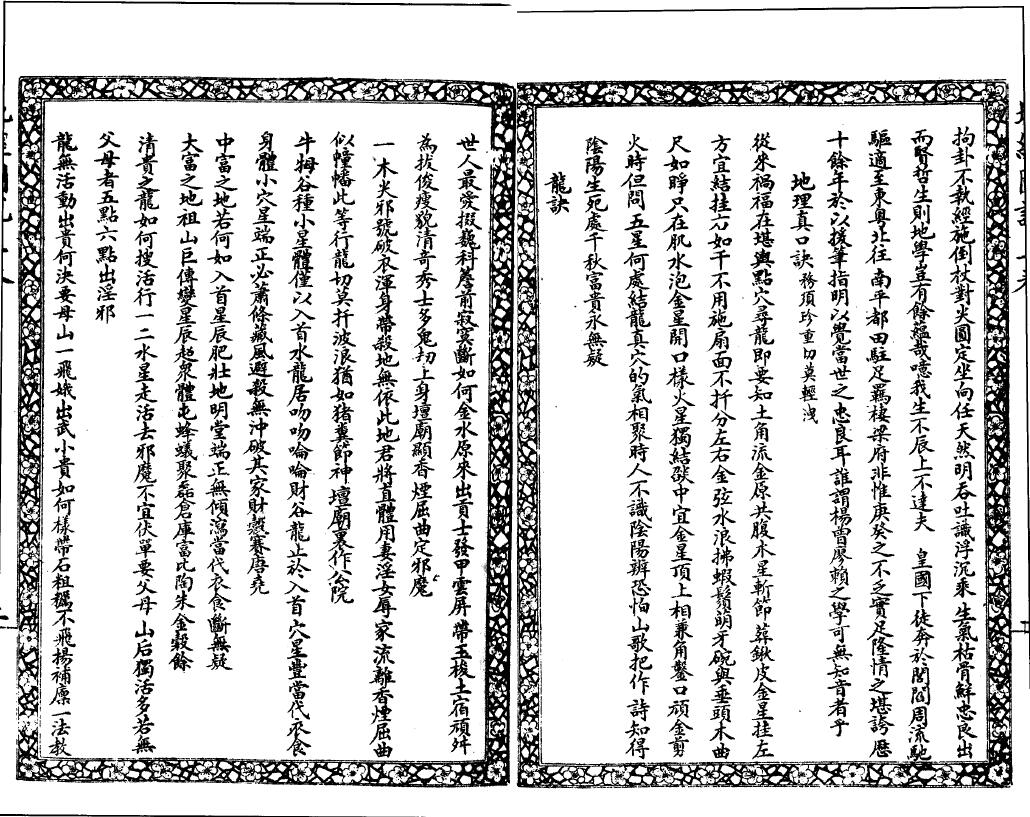 拘卦不執經施倒杖對尖圓定坐向任天然明吞吐識浮沉乘生氣枯骨鮮忠良出
而賢哲生則地學豈有餘蘊哉噫我生不辰上不達夫 皇國下徒奔於閭閻周流馳
驅適至東粵北往南平都田駐足羈棲梁府非惟庚癸之不之實足隆情之堪誇歷
十餘年於以援筆指明以覺當世之忠良耳誰謂楊曾廖賴之學可無知音者乎
地理真口訣 務須珍重切莫輕洩
從來禍福在堪輿點穴尋龍即要知土角流金原共腹木星斬節葬鍬皮金星挂左
方宜結挂右如干不用施扇面不扦分左右金弦水浪拂蝦鬚萌牙碗與垂頭木曲
尺如睜只在肌水泡金星開口樣火星獨結燄中宜金星頂上相兼角鑿口頑金剪
火時但問五星何處結龍真穴的氣相聚時人不識陰陽辨恐怕山歌把作詩知得
陰陽生死處千秋富貴永無疑
龍訣
世人最愛掇巍科落前寂寞斷如何金水原來出貢士發甲雲屏帶玉梭土宿頑
為拔俊瘦貌清奇秀士多鬼刧上身壇廟顯香煙屈曲定邪魔
一木火邪號破衣渾身帶殺地無依此地君將直體用妻淫女辱家流離香煙屈曲
似幢幡此等行龍切莫扦波浪猶如猪糞節神壇廟裏作公院
牛𤘽谷種小星體僅以入首水龍居吻吻噏噏財谷龍止於入首穴星豐當代衣食
身體小穴星端正必蕭條藏風避殺無沖破其家財穀賽唐堯
中富之地若何如入首星辰肥壯地明堂端正無傾瀉當代衣食斷無疑
大富之地祖山巨傳變星辰超衆體屯蜂蟻聚磊倉庫富比陶朱金穀餘
清貴之龍如何搜活行一二水星走活去邪魔不宜伏單要父母山后獨活多若無
父母者五點六點出淫邪
龍無活動出貴何決要母山一飛娥出武小貴如何樣帶石粗穩不飛揚補廉一法教